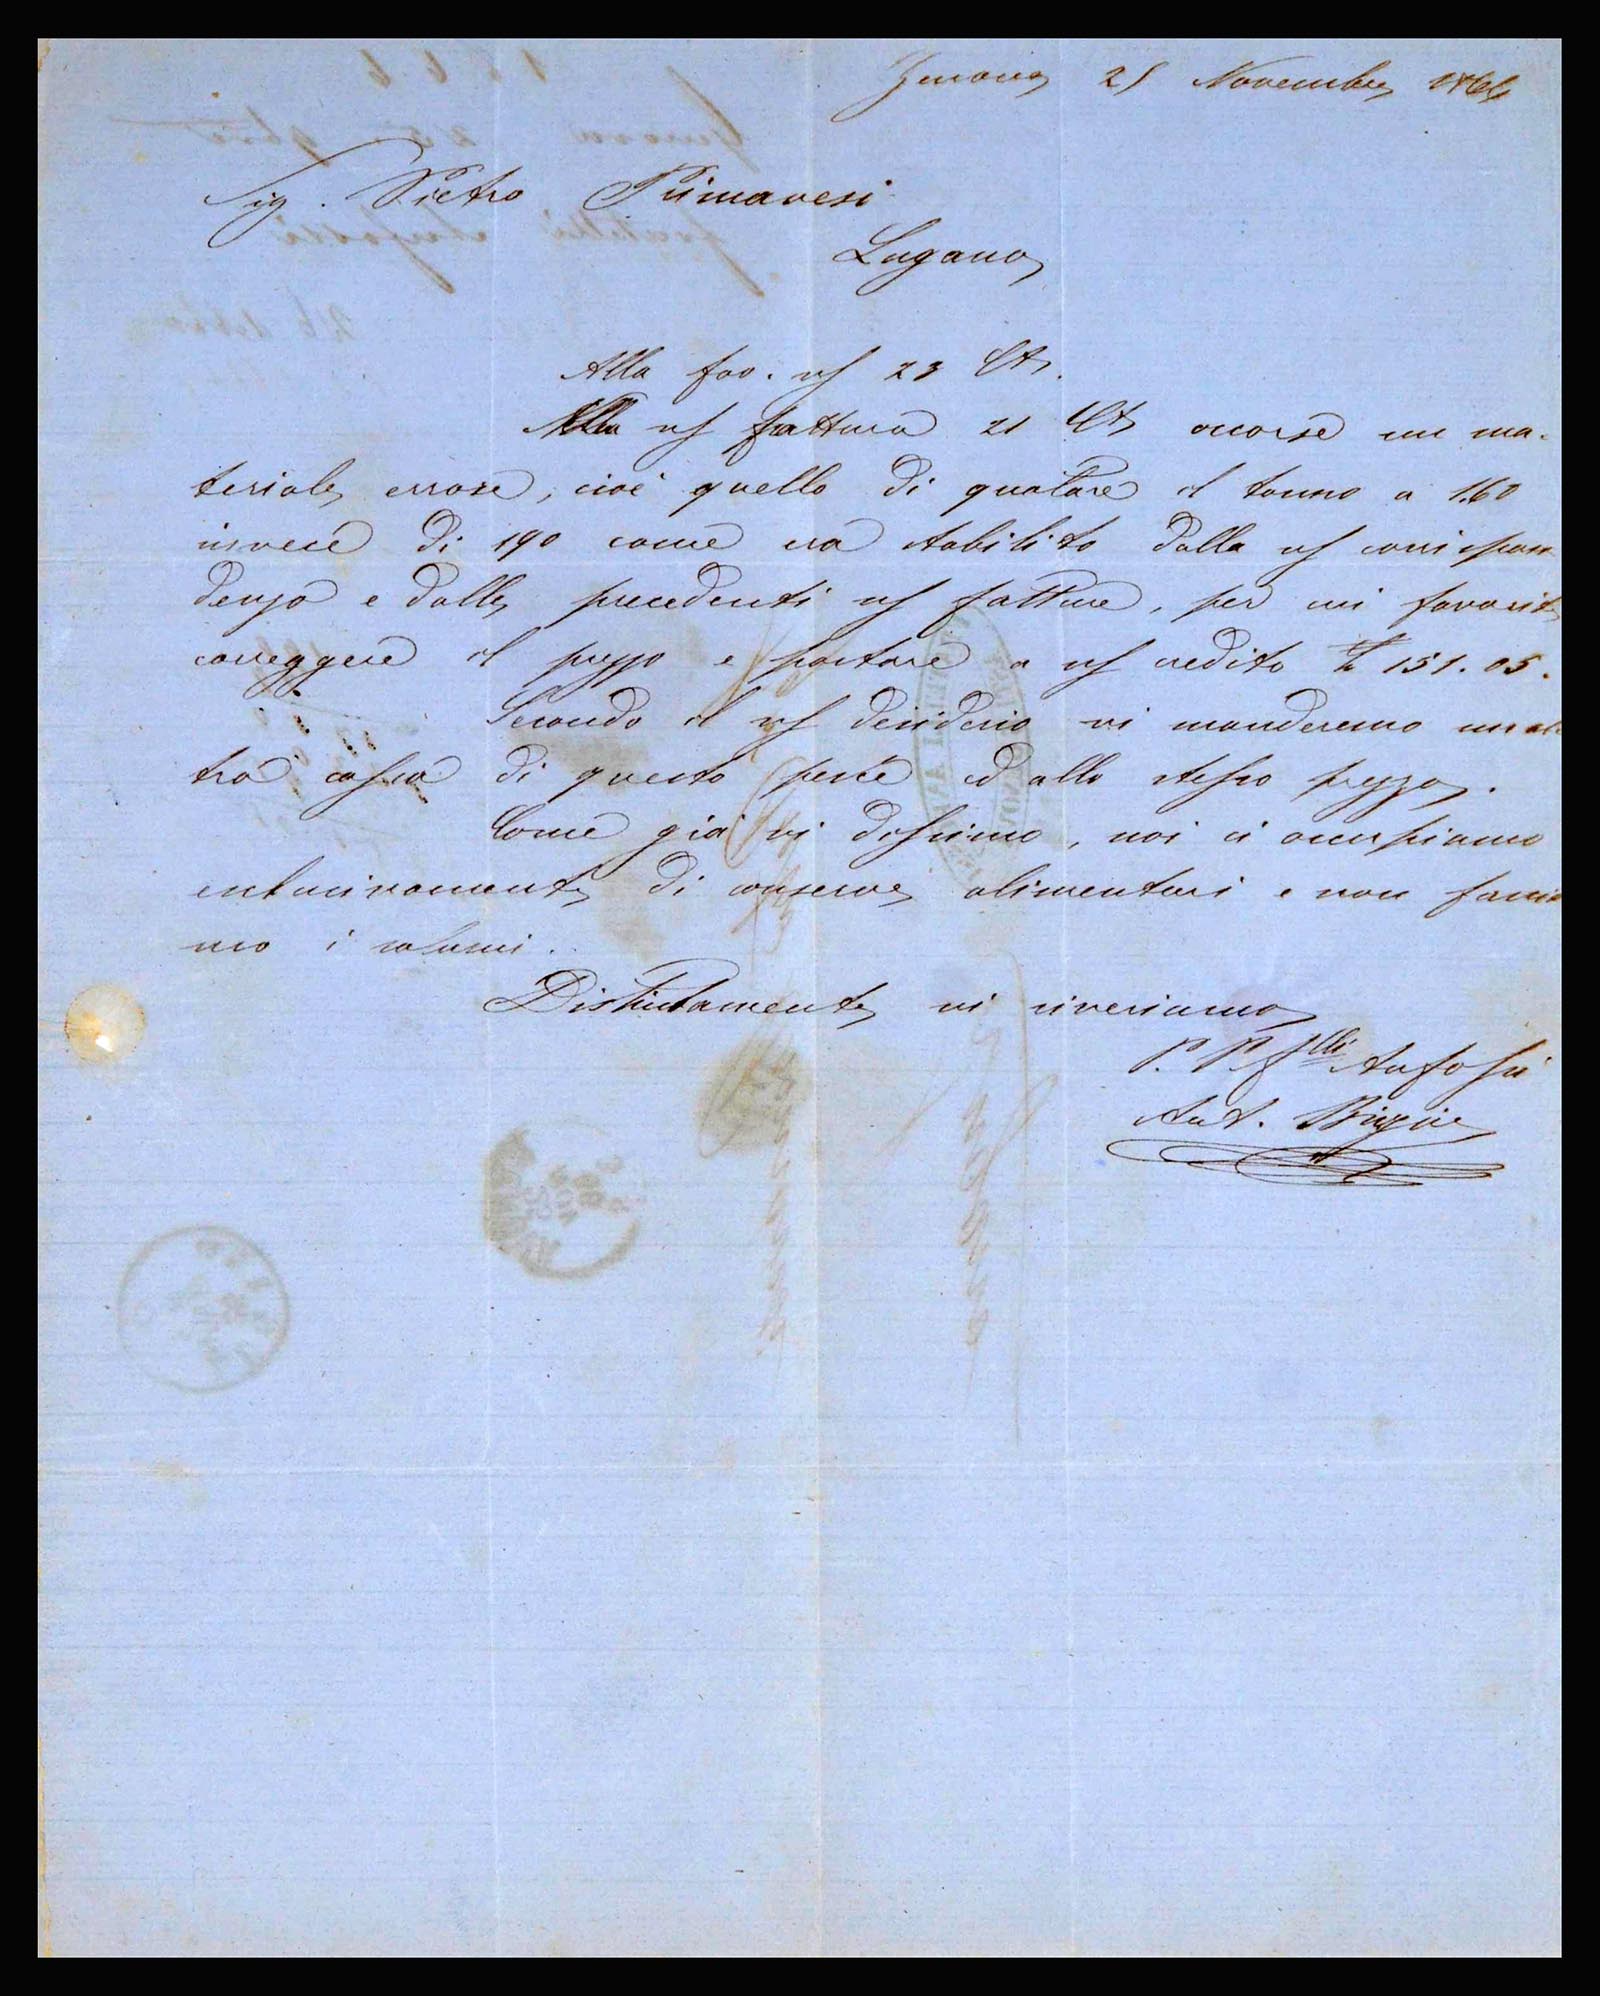 Genova 25 Novembre 1866
Sig. Pietro Primavesi
Lugano
Alla fav. vs 23 Ct.
Nella ns fattura 21 Ct occorse un ma-
teriale errore, cioè quello di quotare il tonno a 1.60
invece di 190 come era stabilito dalla ns corrispon
denza e dalle precedenti ns fatture, per cui favorite
correggere il prezzo e portare a ns credito £ 151.05.
Secondo il vs desiderio vi manderemo un al
tra cassa di questo pesce ed allo stesso prezzo.
Come già vi dissimo, noi ci occupiamo
esclusivamente di conserve alimentari e non faccia
mo i salumi.
Distintamente vi riveriamo
P. P. Flli Anfossi
Ant.